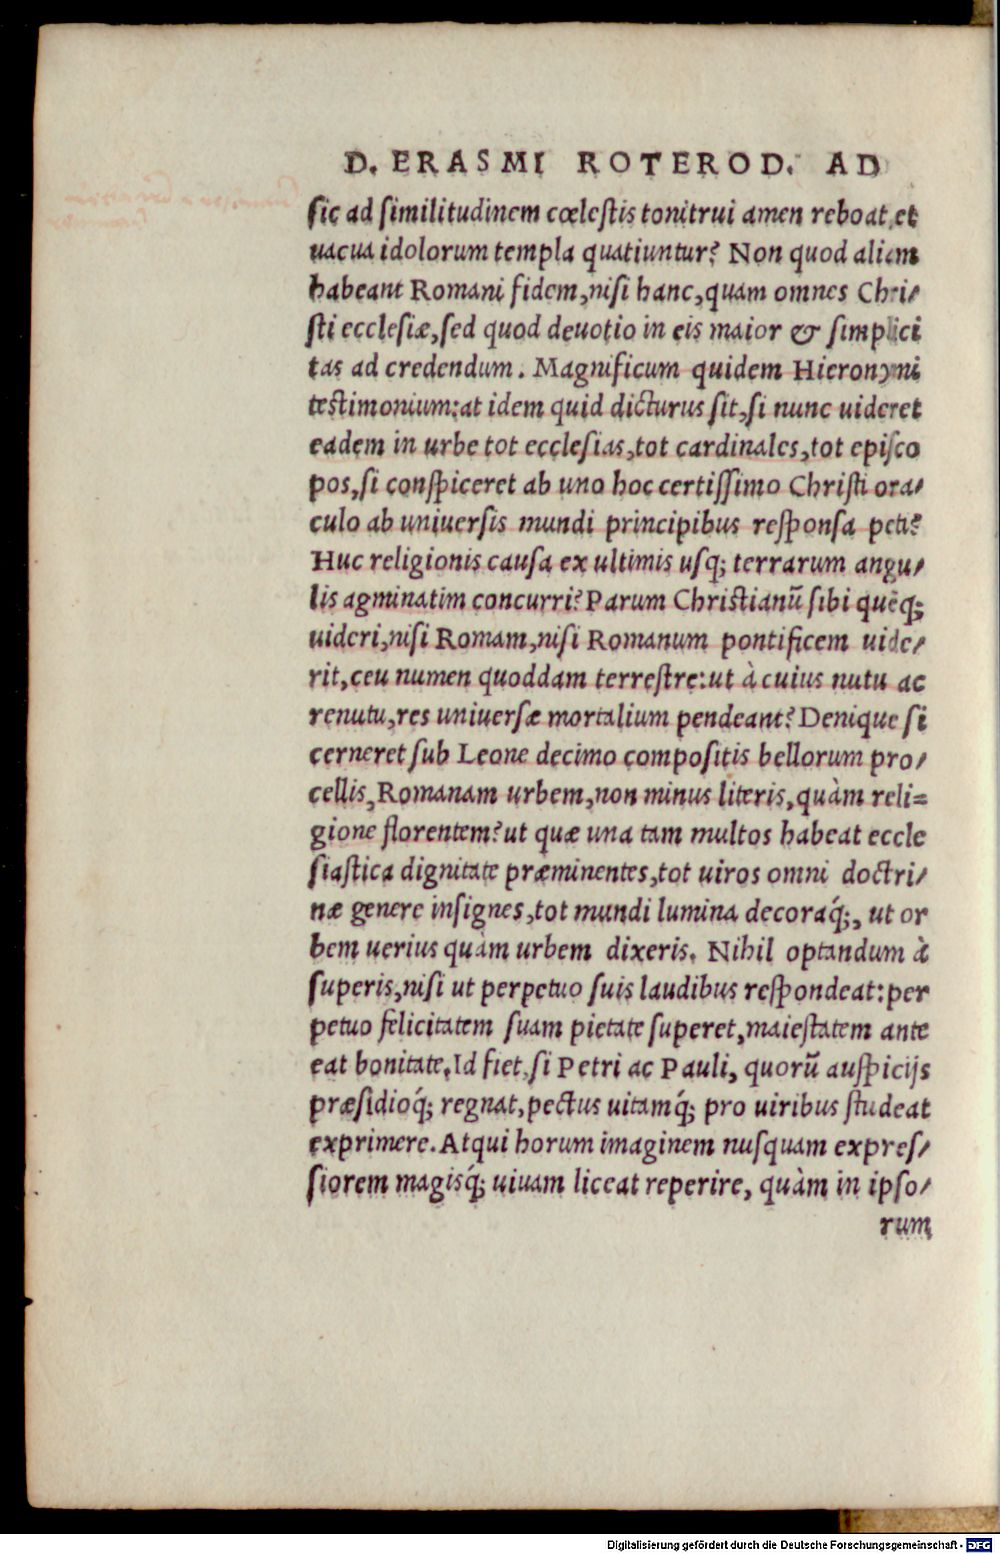 D. ERASMI ROTEROD. AD
sic ad similitudinem cœlestis tonitrui amen reboat, et
uacua idolorum templa quatiuntur? Non quod aliam
habeant Romani fidem, nisi hanc, quam omnes Chri/
sti ecclesiæ, sed quod deuotio in eis maior & simplici
tas ad credendum. Magnificum quidem Hieronymi
testimonium: at idem quid dicturus sit, si nunc uideret
eadem in urbe tot ecclesias, tot cardinales, tot episco
pos, si conspiceret ab uno hoc certissimo Christi ora/
culo ab uniuersis mundi principibus responsa peti?
Huc religionis causa ex ultimis usq; terrarum angu/
lis agminatim concurri? Parum Christianū sibi quēq;
uideri, nisi Romam, nisi Romanum pontificem uide/
rit, ceu numen quoddam terrestre: ut à cuius nutu ac
renutu, res uniuersæ mortalium pendeant? Denique si
cerneret sub Leone decimo compositis bellorum pro/
cellis, Romanam urbem, non minus literis, quàm reli=
gione florentem? ut quæ una tam multos habeat eccle
siastica dignitate præminentes, tot uiros omni doctri/
næ genere insignes, tot mundi lumina decoraq́;, ut or
bem uerius quàm urbem dixeris. Nihil optandum à
superis, nisi ut perpetuo suis laudibus respondeat: per
petuo felicitatem suam pietate superet, maiestatem ante
eat bonitate. Id fiet, si Petri ac Pauli, quorū auspicijs
præsidioq́; regnat, pectus uitamq́; pro uiribus studeat
exprimere. Atqui horum imaginem nusquam expres/
siorem magisq́; uiuam liceat reperire, quàm in ipso/
rum
Digitalisierung gefördert durch die Deutsche Forschungsgemeinschaft - DFG